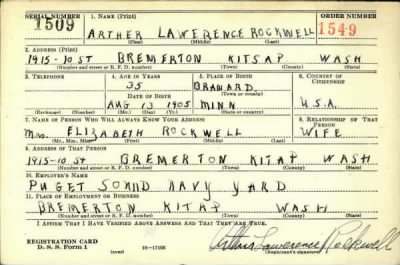 SERIAL NUMBER 1. NAME (Print) ORDER NUMBER
1509 ARTHER LAWERENCE ROCKWELL 1549
(First) (Middle) (Last)
2. ADDRESS (Print)
1915-10 ST BREMERTON KITSAP WASH
(Number and street or R. F. D. number) (Town) (County) (State)
3. TELEPHONE 4. AGE IN YEARS 5. PLACE OF BIRTH 6. COUNTRY OF CITIZENSHIP
35 BRAWARD
DATE OF BIRTH (Town or county)
AUG 13 1905 MINN U.S.A.
(Exchange) (Number) (Mo.) (Day) (Yr.) (State or country)
7. NAME OF PERSON WHO WILL ALWAYS KNOW YOUR ADDRESS 8. RELATIONSHIP OF THAT PERSON
Mrs. ELIZABETH ROCKWELL WIFE
(Mr., Mrs., Miss) (First) (Middle) (Last)
9. ADDRESS OF THAT PERSON
1915-10 ST BREMERTON KITAP WASH
(Number and street or R. F. D. number) (Town) (County) (State)
10. EMPLOYER'S NAME
PUGET SOUND NAVY YARD
11. PLACE OF EMPLOYMENT OR BUSINESS
BREMERTON KITAP WASH
(Number and street or R. F. D. number) (Town) (County) (State)
I AFFIRM THAT I HAVE VERIFIED ABOVE ANSWERS AND THAT THEY ARE TRUE.
REGISTRATION CARD
D. S. S. Form 1 (over) 16-17105 Arthur Lawerence Rockwell
(Registrant's signature)